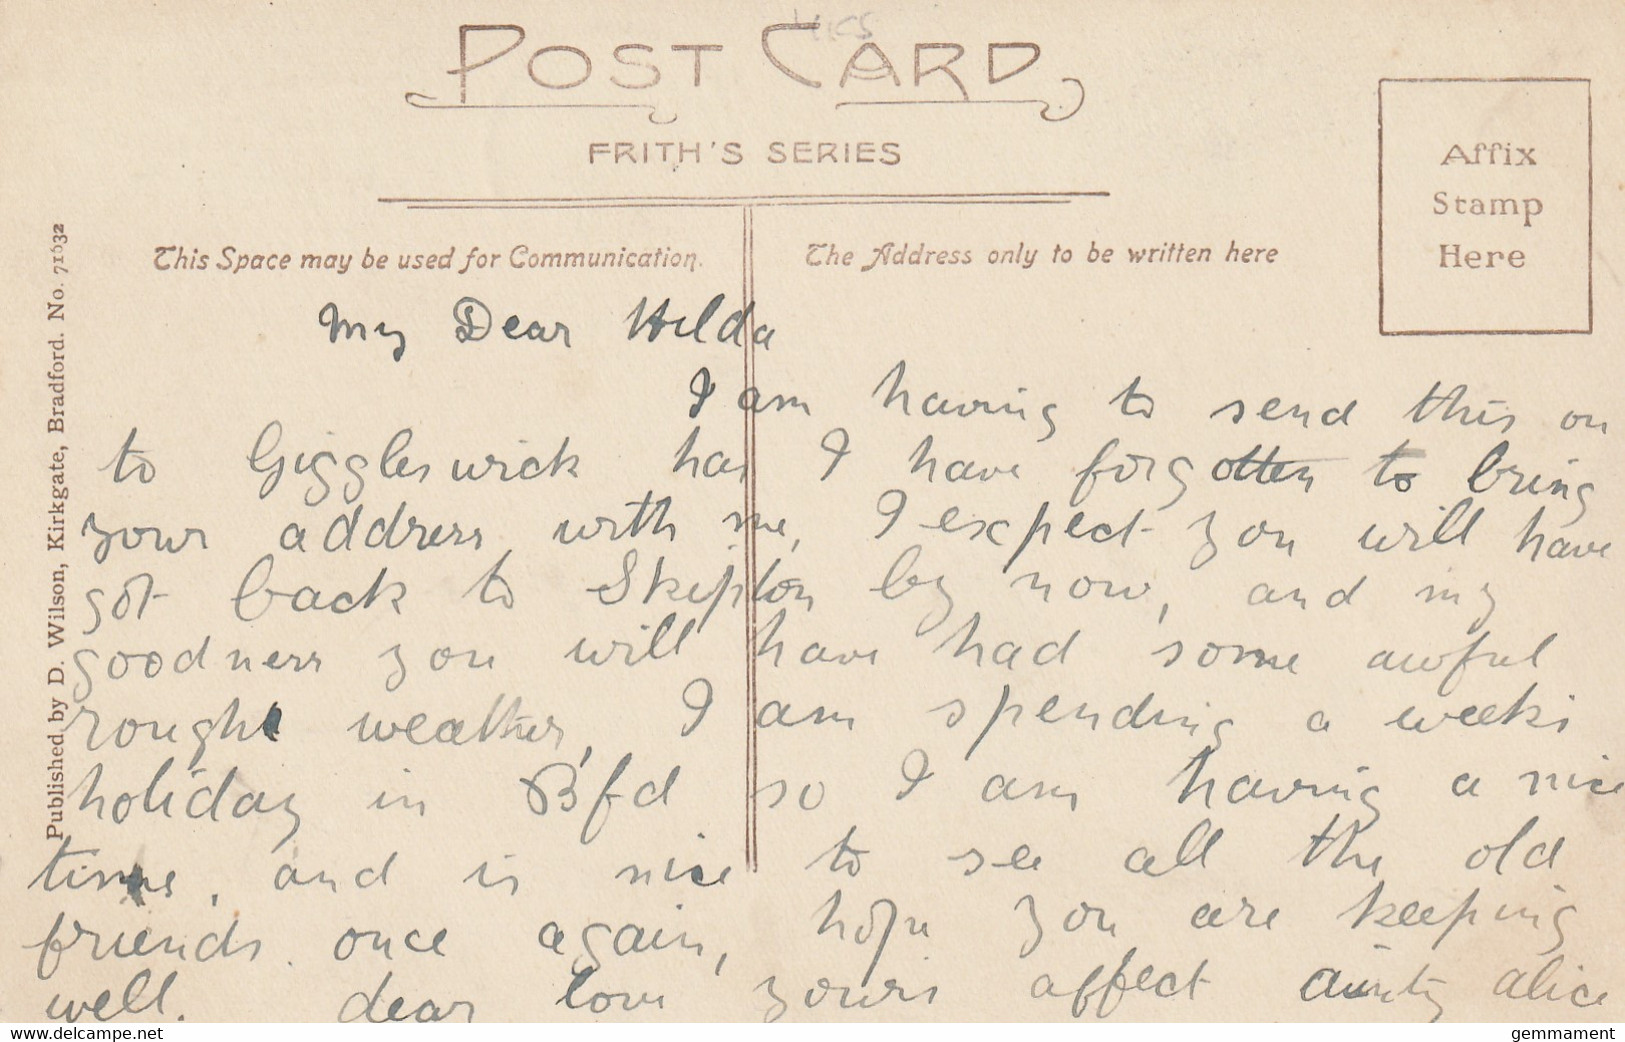 POST CARD
FRITH'S SERIES
Affix
Stamp
Here
This Space may be used for Communication.
The Address only to be written here
Published by D. Wilson, Kirkgate, Bradford. No. 71632
My Dear Hilda
I am having to send this on
to Giggleswick has I have forgotten to bring
your address with me, I expect you will have
got back to Skipton by now, and my
goodness you will have had some awful
rough weather, I am spending a weeks
holiday in B'fd so I am having a nice
time, and is nice to see all the old
friends once again, hope you are keeping
well. dear love yours affect aunty alice
www.delcampe.net
gemmament